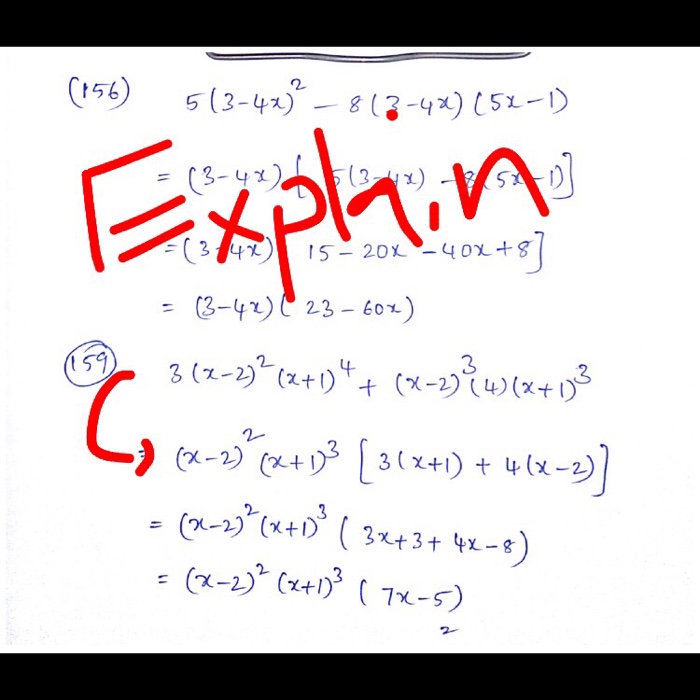 (156) 5(3-4x)² - 8(3-4x)(5x-1)
= (3-4x)[5(3-4x) - 8(5x-1)]
Explain
= (3-4x)[15-20x-40x+8]
= (3-4x)(23-60x)
(159) 3(x-2)²(x+1)⁴ + (x-2)³(4)(x+1)³
= (x-2)²(x+1)³ [3(x+1) + 4(x-2)]
= (x-2)²(x+1)³ (3x+3+4x-8)
= (x-2)²(x+1)³ (7x-5)